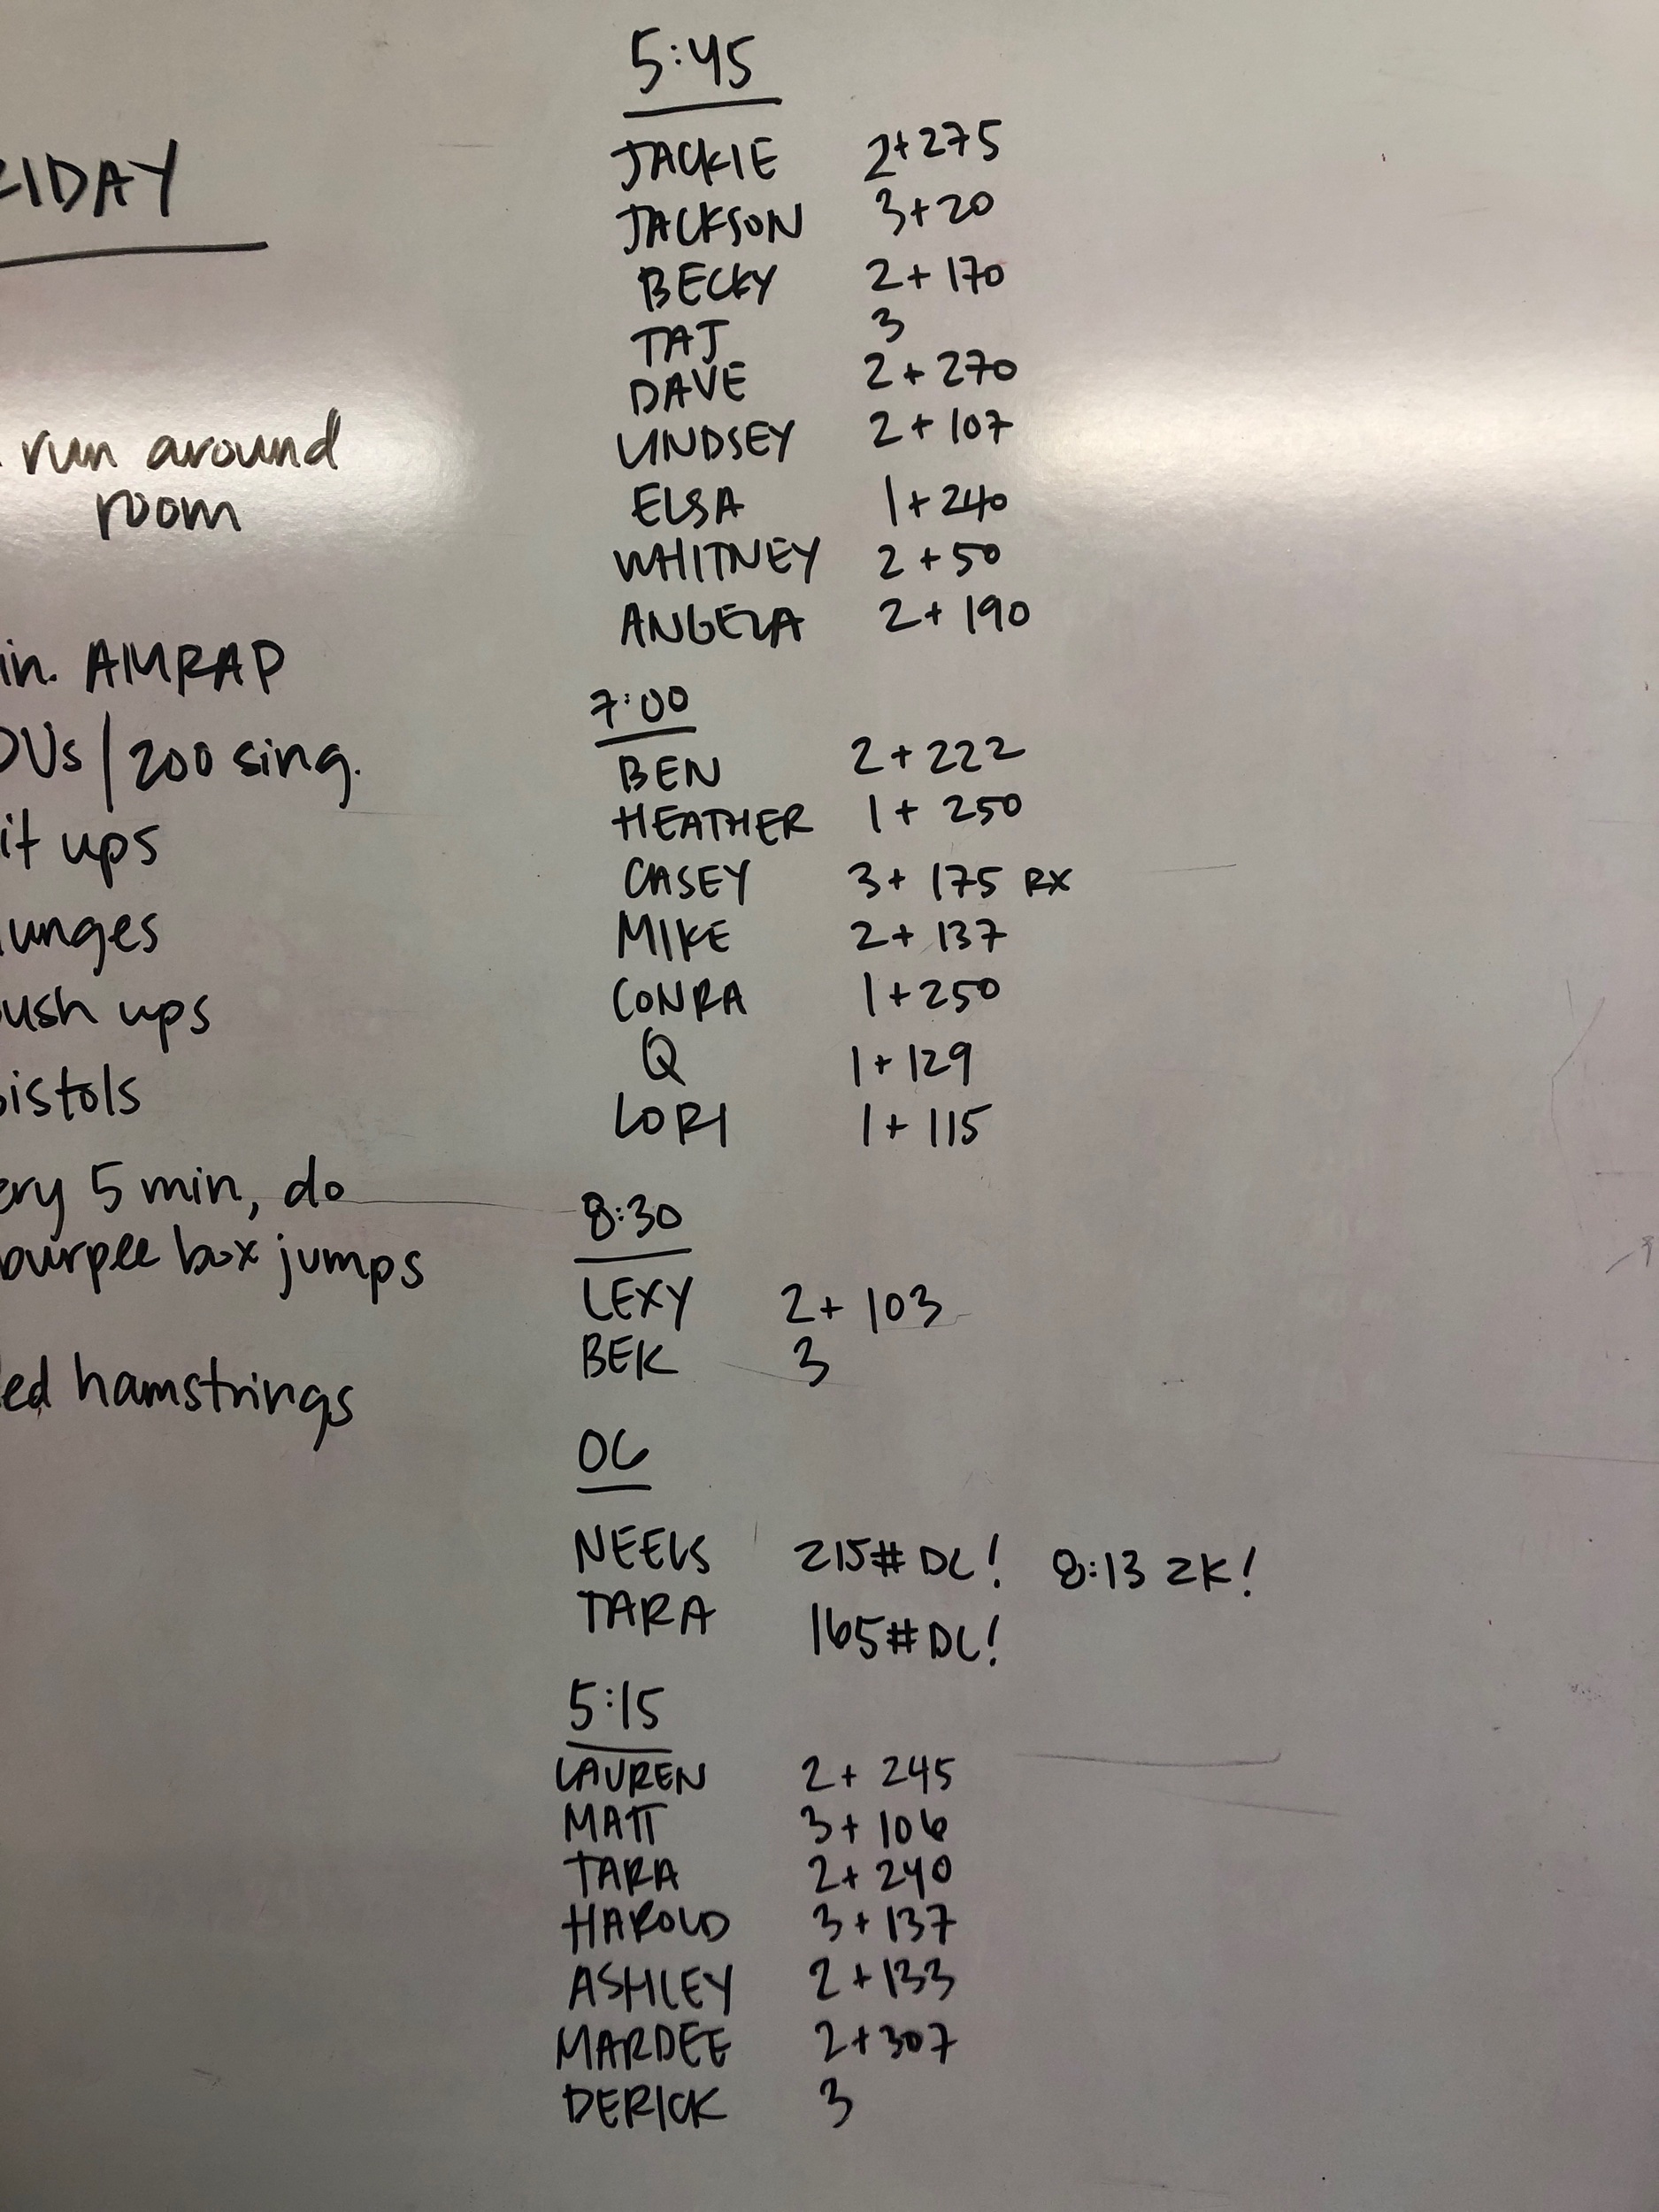 FRIDAY
run around
room
in. AMRAP
DUs / 200 sing.
it ups
lunges
ush ups
istols
ery 5 min, do
burpee box jumps
ed hamstrings
5:45
JACKIE 2+275
JACKSON 3+20
BECKY 2+170
TAJ 3
DAVE 2+270
LINDSEY 2+107
ELSA 1+240
WHITNEY 2+50
ANGELA 2+190
7:00
BEN 2+222
HEATHER 1+250
CASEY 3+175 RX
MIKE 2+137
CONRA 1+250
Q 1+129
LORI 1+115
8:30
LEXY 2+103
BEK 3
OG
NEELS 215# DL! 8:13 2K!
TARA 165# DL!
5:15
LAUREN 2+245
MATT 3+106
TARA 2+240
HAROLD 3+137
ASHLEY 2+133
MARDEE 2+307
DERICK 3